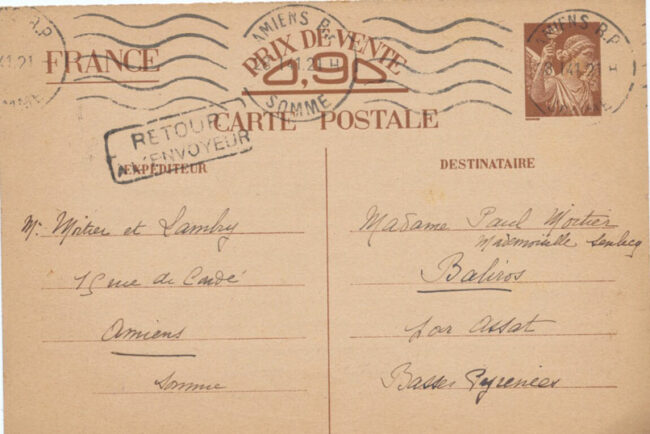 AMIENS R.P.
SOMME
FRANCE
PRIX DE VENTE
0,90
CARTE POSTALE
RETOUR
A L'ENVOYEUR
EXPÉDITEUR
DESTINATAIRE
Mr. Mortier et Lambry
15 rue de Condé
Amiens
Somme
Madame Paul Mortier
Mademoiselle
Baliros
par Assat
Basses Pyrénées